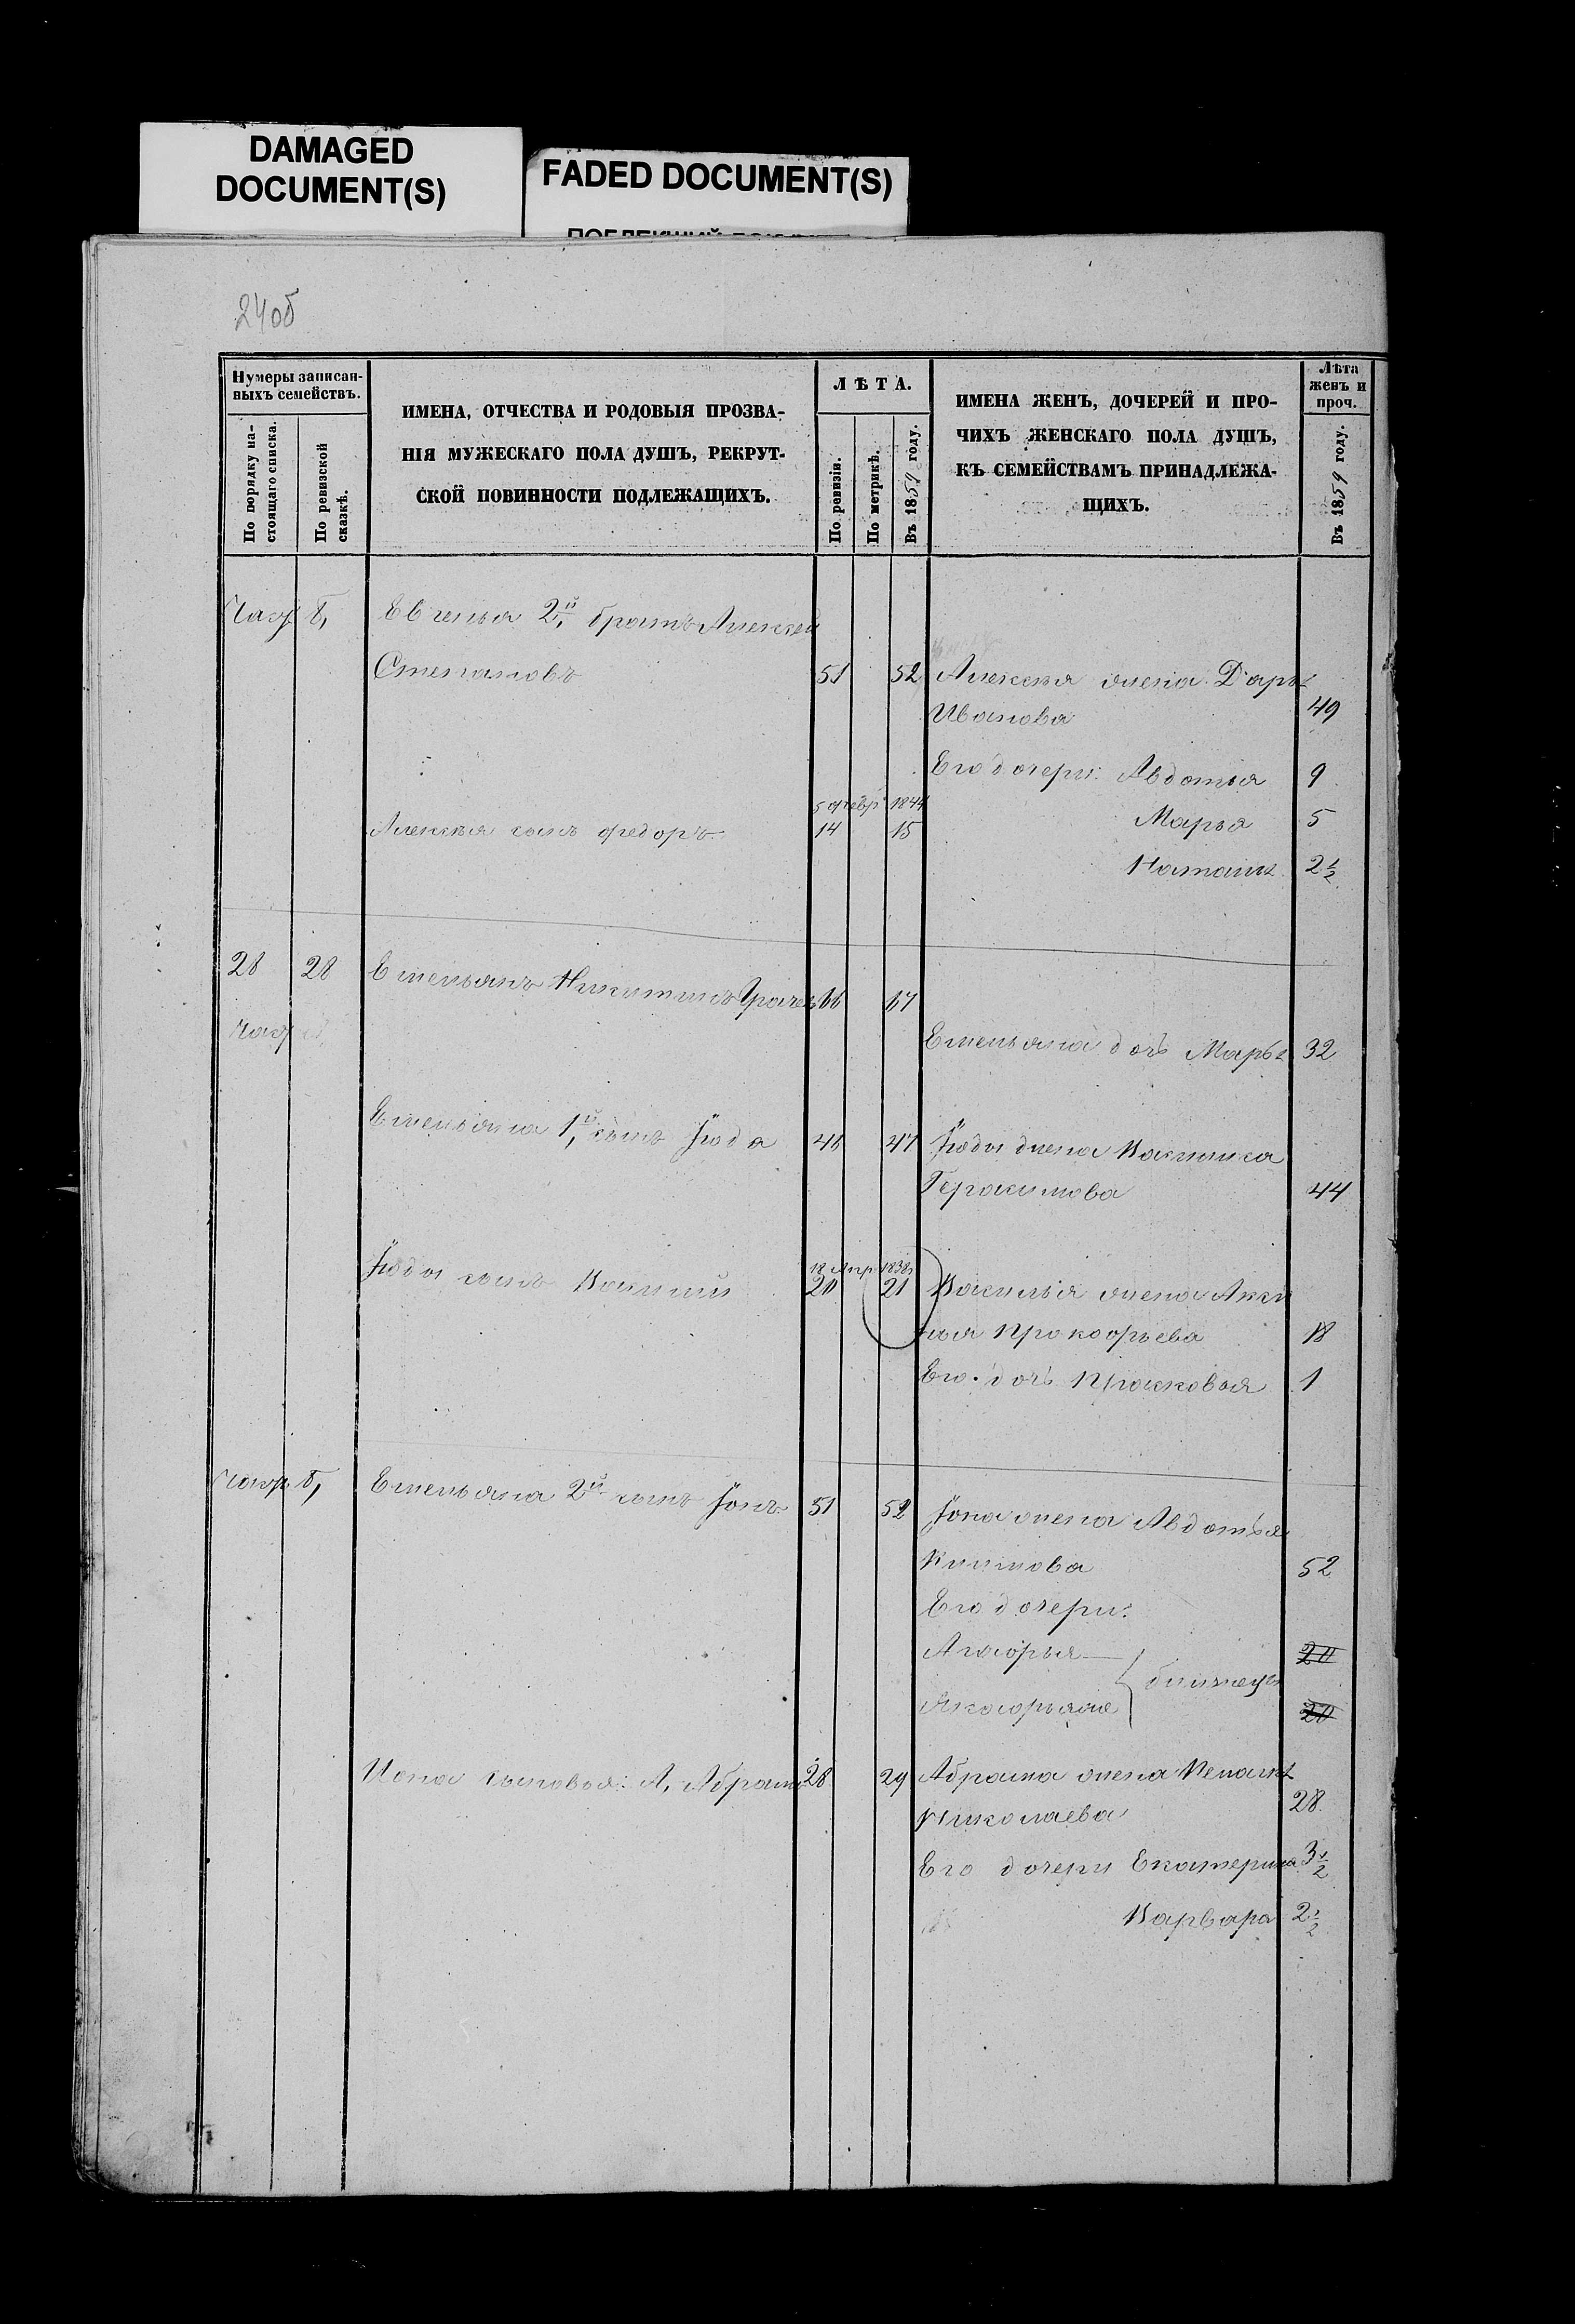 DAMAGED
DOCUMENT(S)
FADED DOCUMENT(S)
240б
Нумеры записан-
ныхъ семействъ.
По порядку на-
стоящаго списка.
По ревизской
сказкѣ.
ИМЕНА, ОТЧЕСТВА И РОДОВЫЯ ПРОЗВА-
НІЯ МУЖЕСКАГО ПОЛА ДУШЪ, РЕКРУТ-
СКОЙ ПОВИННОСТИ ПОДЛЕЖАЩИХЪ.
ЛѢТА.
По ревизіи.
По метрикѣ.
Въ 1859 году.
ИМЕНА ЖЕНЪ, ДОЧЕРЕЙ И ПРО-
ЧИХЪ ЖЕНСКАГО ПОЛА ДУШЪ,
КЪ СЕМЕЙСТВАМЪ ПРИНАДЛЕЖА-
ЩИХЪ.
Лѣта
женъ и
проч.
Въ 1859 году.
2й братъ Алексей
Степановъ 51 52 Алексѣя жена Дарья
Иванова 49
Его дочери: Авдотья 9
1844
Алексѣя сынъ Федоръ 14 15 Марья 5
Наталья 2½
28 28 Емельянъ Никитинъ 66 67
Емельяна дочь Марья 32
Емельяна 1й сынъ Іюда 46 47 Іюды жена Василиса
Герасимова 44
18 Апр 1838
Іюды сынъ Василий 20 21 Василья жена Акси
нья Прокофьева 18
Его дочь Прасковья 1
Емельяна 2й сынъ Іонъ 51 52 Іона жена Авдотья
52
Его дочери:
Агафья 20
близнецы
20
Иона сыновья: А, Абрамъ 28 29 Абрама жена Меланья
Николаева 28
Его дочери Екатерина 3½
Варвара 2½